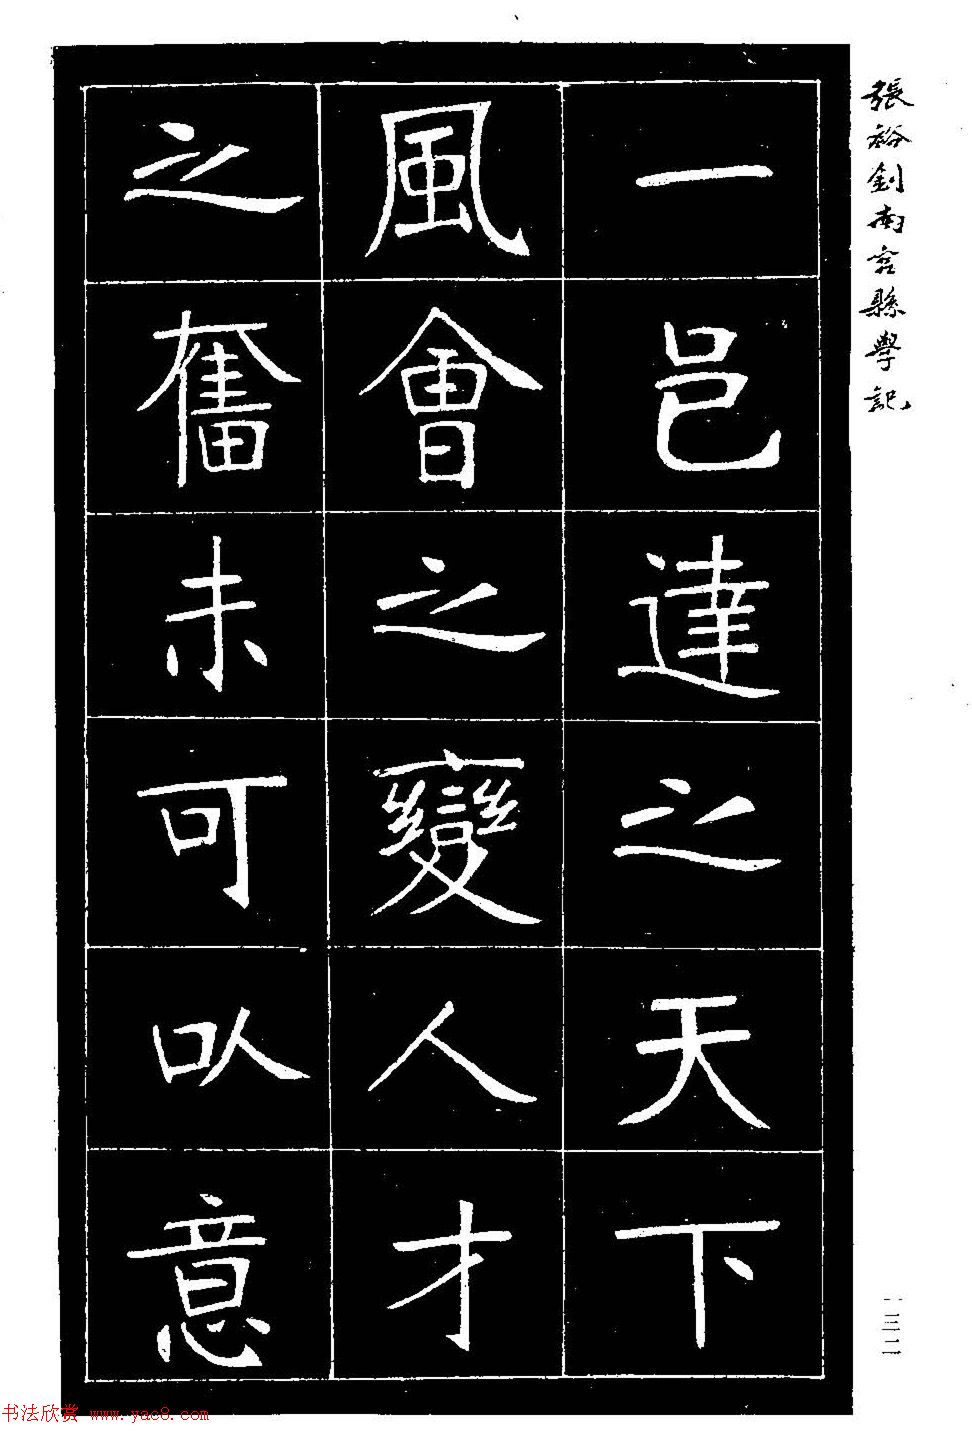 張裕釗南宮縣學記
一邑達之天下
風會之變人才
之奮未可以意
一三二
书法欣赏 www.yac8.com